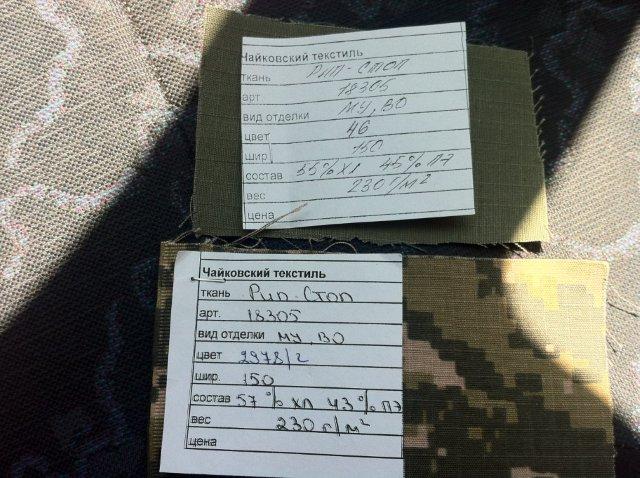 Чайковский текстиль
ткань Рип-Стоп
арт 18305
вид отделки МУ, ВО
цвет 46
шир. 150
состав 55% ХЛ 45% ПЭ
вес 230 г/м²
цена
Чайковский текстиль
ткань Рип-Стоп
арт. 18305
вид отделки МУ, ВО
цвет 2978/2
шир. 150
состав 57 % ХЛ 43 % ПЭ
вес 230 г/м²
цена